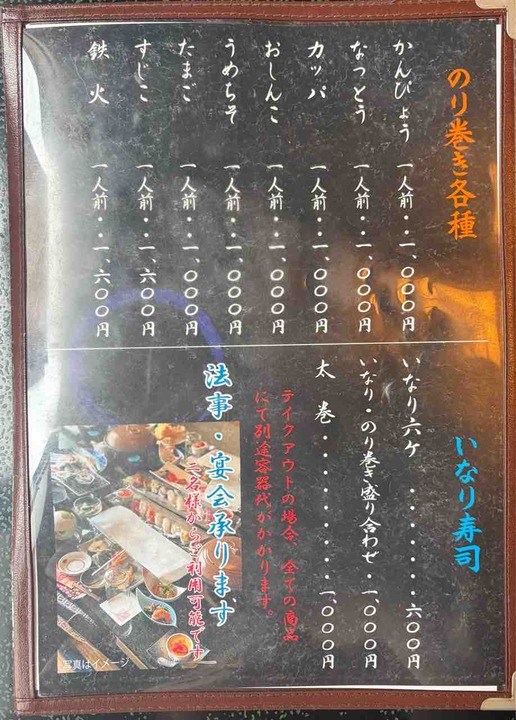 のり巻き各種
かんぴょう 一人前・・一、〇〇〇円
なっとう 一人前・・一、〇〇〇円
カッパ 一人前・・一、〇〇〇円
おしんこ 一人前・・一、〇〇〇円
うめちそ 一人前・・一、〇〇〇円
たまご 一人前・・一、〇〇〇円
すじこ 一人前・・一、六〇〇円
鉄火 一人前・・一、六〇〇円
いなり寿司
いなり六ケ・・・・・・・・六〇〇円
いなり・のり巻き盛り合わせ・一、〇〇〇円
太巻・・・・・・・・・・一、〇〇〇円
テイクアウトの場合、全ての商品
にて別途容器代がかかります。
法事・宴会承ります
二名様からご利用可能です
写真はイメージ